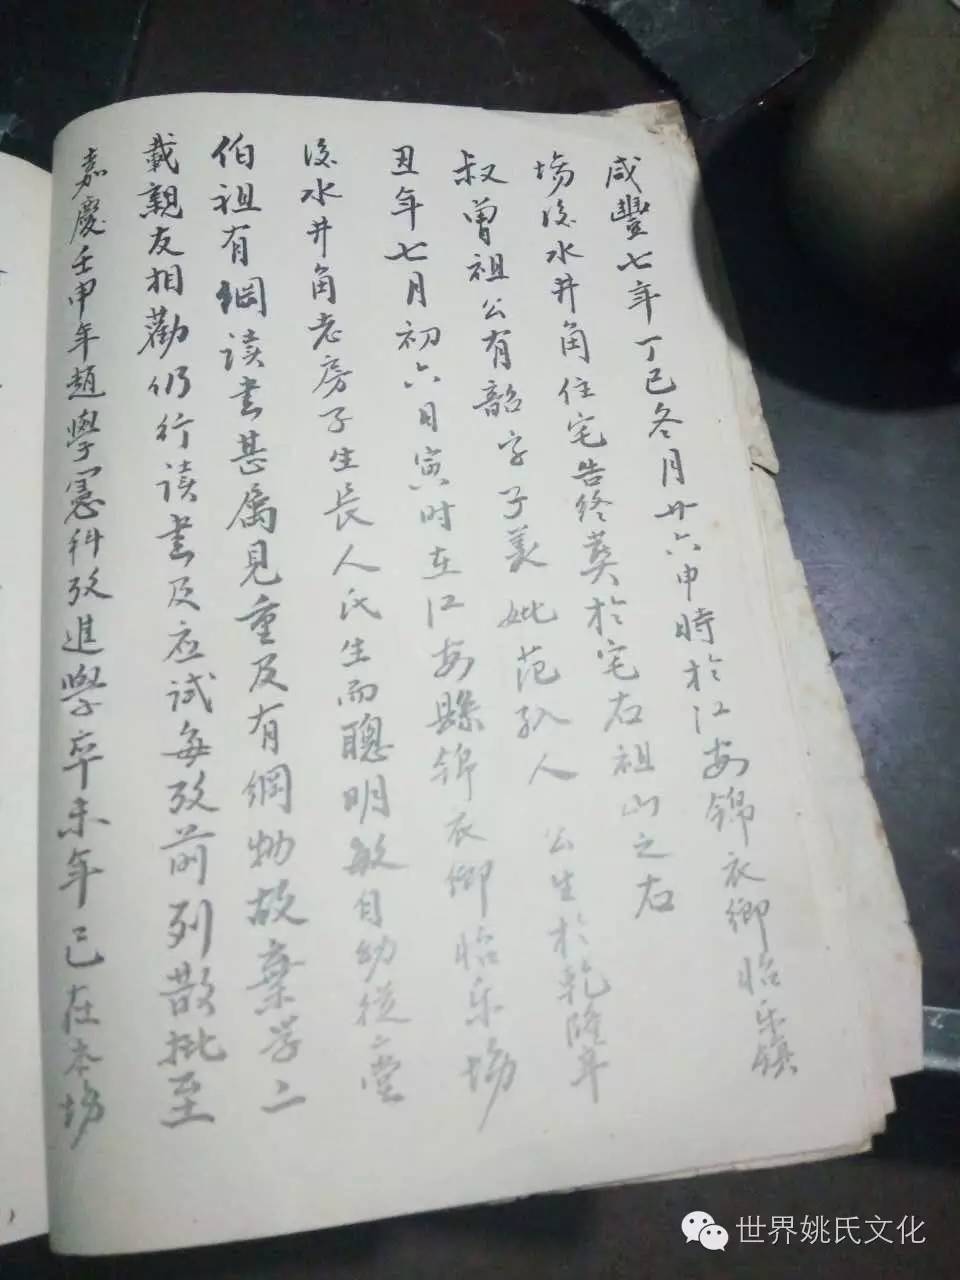 咸豐七年丁巳冬月廿六申時於江安錦衣鄉怡乐镇
場後水井角住宅告终葬於宅右祖山之右
叔曾祖公有韶字子美妣范孺人 公生於乾隆辛
丑年七月初六日寅时在江安縣錦衣鄉怡乐場
後水井角老房子生長人氏生而聰明敏自幼從二堂
伯祖有綱读书甚属見重及有綱物故棄学二
載親友相勸仍行读书及应试每攷前列散批至
嘉慶壬申年趙學憲科攷進學辛未年已在本場
世界姚氏文化